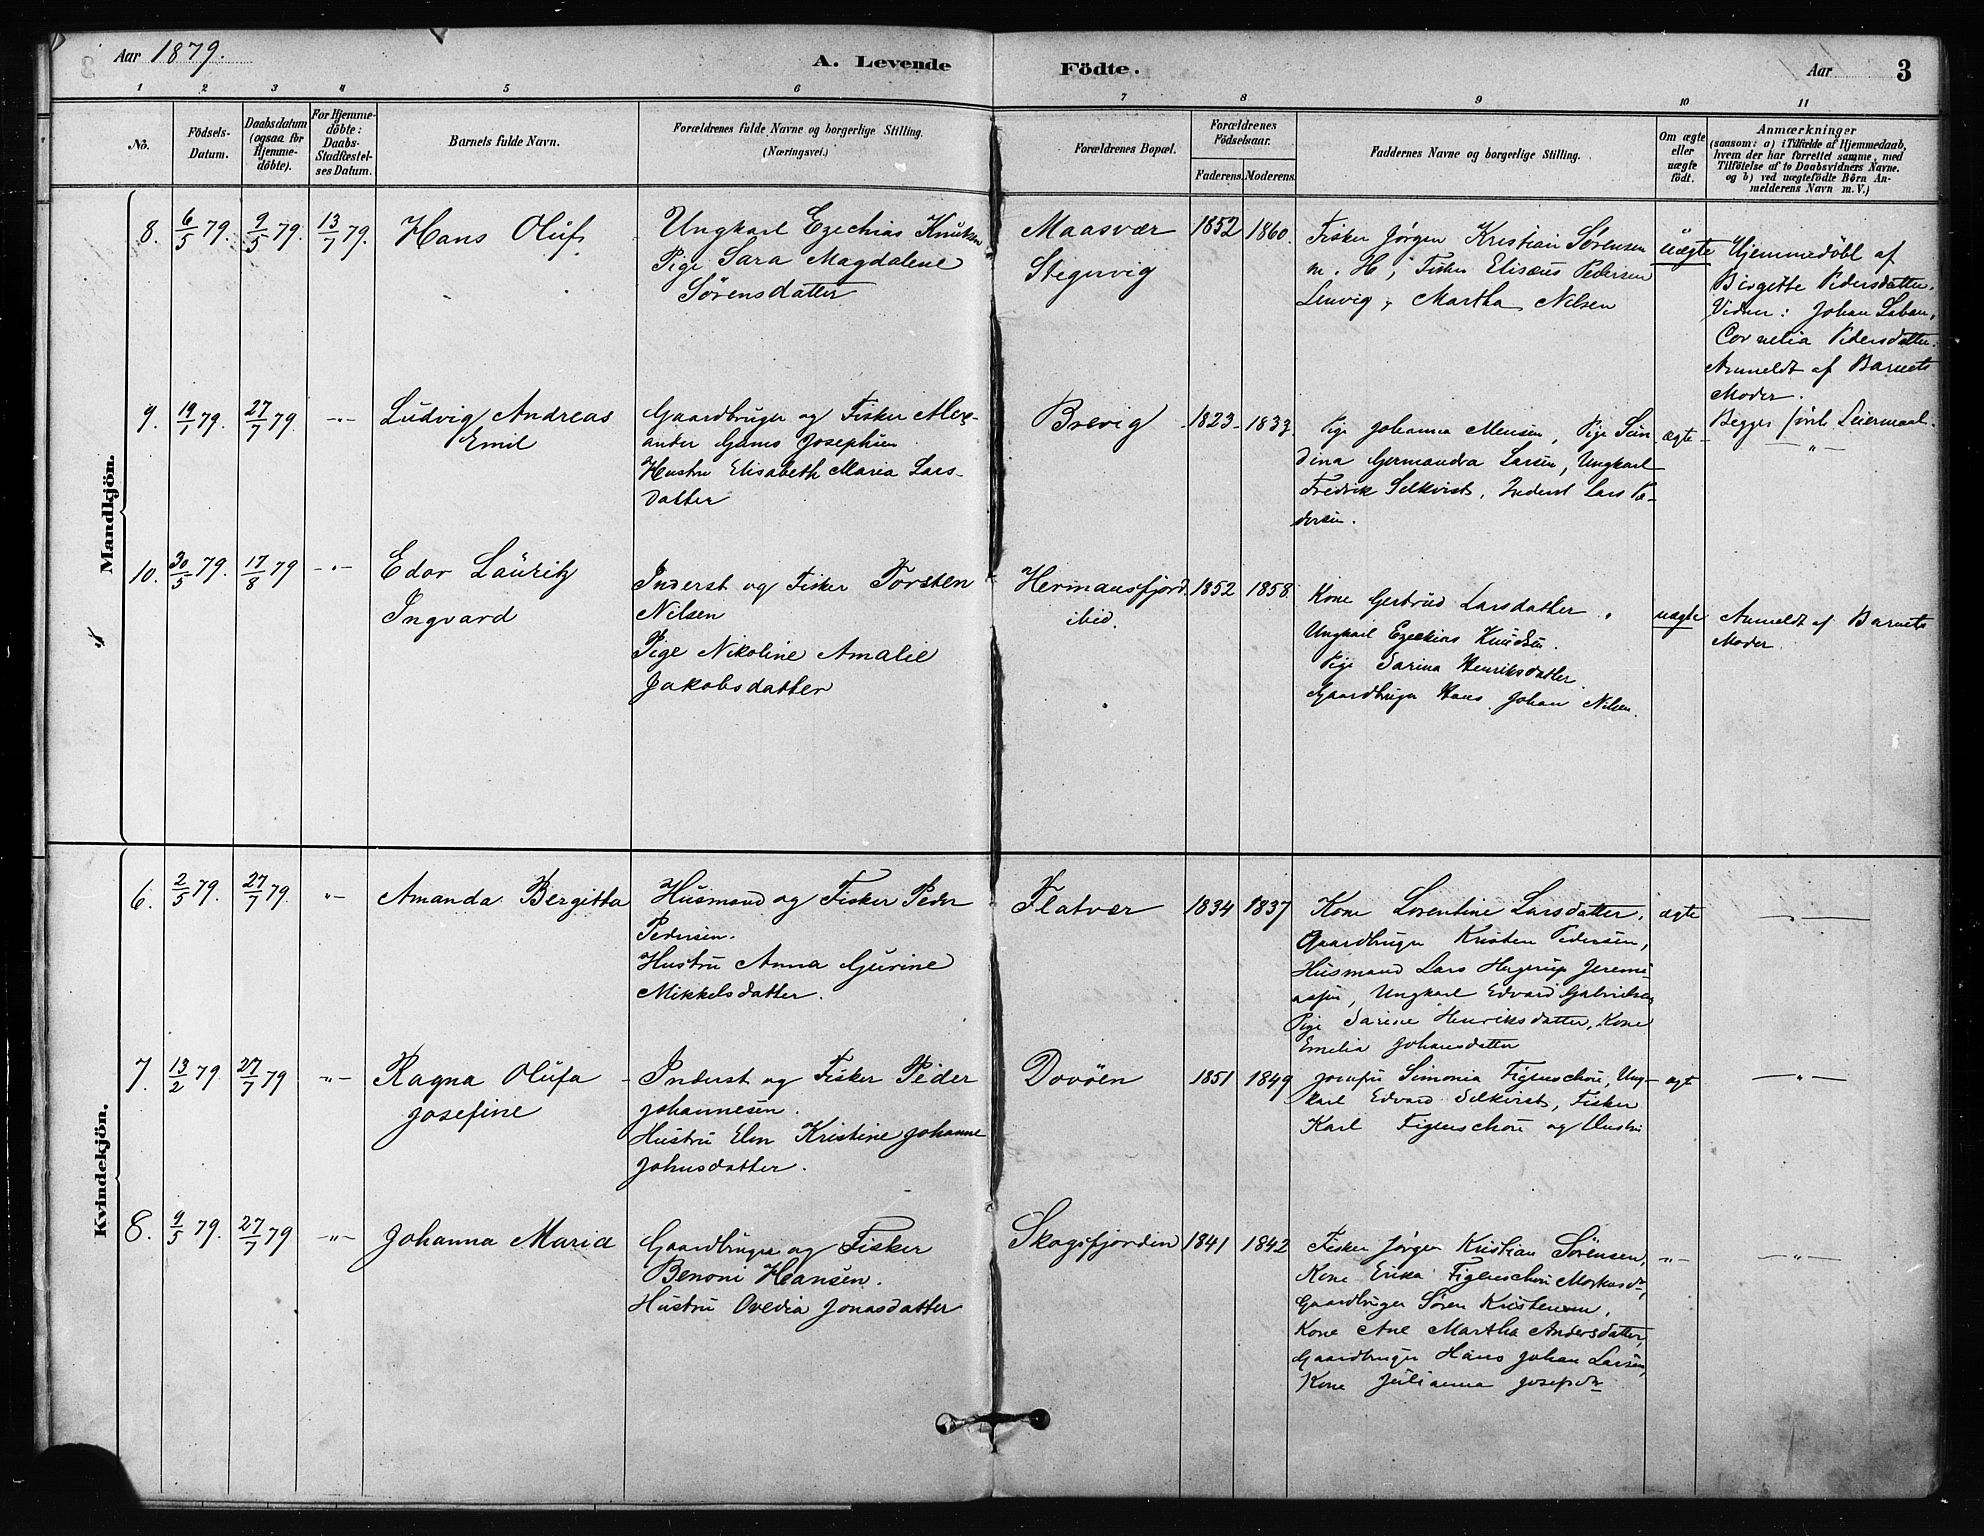 Aar 1879.
A. Levende Födte.
Aar 3
1 2 3 4 5 6 7 8 9 10 11
No.
Födsels-
Datum.
Daabsdatum
(ogsaa for
Hjemme-
döbte).
For Hjemme-
döbte:
Daabs-
Stadfæstel-
ses Datum.
Barnets fulde Navn.
Forældrenes fulde Navne og borgerlige Stilling.
(Næringsvei.)
Forældrenes Bopæl.
Forældrenes
Födselsaar.
Faderens. Moderens.
Faddernes Navne og borgerlige Stilling.
Om ægte
eller
uægte
födt.
Anmærkninger
(saasom: a) i Tilfælde af Hjemmedaab,
hvem der har forrettet samme, med
Tilföielse af to Daabsvidners Navne.
og b) ved uægtefödte Börn An-
melderens Navn m. V.)
Mandkjön.
8. 6/5 79. 9/5 79. 13/7 79.
Hans Oluf
Ungkarl Ezechias Knutsen
Pige Sara Magdalene
Sørensdatter
Maasvær
Stegervig
1852 1860.
Fisker Jørgen Kristian Sørensen
m. H; Fisker Elisæus Pedersen
Lenvig, Martha Nilsen
uægte
Hjemmedøbt af
Birgitte Pedersdatter.
Vidner: Johan Laban,
Cornelia Pedersdatter.
Anmeldt af Barnets
Moder.
Begges første Leiermaal.
9. 19/1 79. 27/7 79. -"-
Ludvig Andreas
Emil
Gaardbruger og Fisker Alex-
ander Gams Josephsen
Hustru Elisabeth Maria Lars-
datter
Brevig
1823 1837.
Pige Johanna Mensen, Pige Sen
dina Germandra Larsen, Ungkarl
Fredrik Selkvist, Inderst Lars Pe-
dersen.
ægte
-"-
10. 30/5 79. 17/8 79 -"-
Edor Lauritz
Ingvard
Inderst og Fisker Torsten
Nilsen
Pige Nikoline Amalie
Jakobsdatter
Hermansfjord
ibid.
1852 1858.
Kone Gertrud Larsdatter,
Ungkarl Ezekias Knudsen.
Pige Sarina Henriksdatter
Gaardbruger Hans Johan Nilsen.
uægte
Anmeldt af Barnets
Moder.
Kvindekjön.
6. 2/5 79. 27/7 79. "-
Amanda Bergitta
Husmand og Fisker Peder
Pedersen.
Hustru Anna Gurine
Mikkelsdatter.
Flatvær
1834 1837
Kone Lorentine Larsdatter,
Gaardbruger Kristen Pedersen,
Husmand Lars Hegerup Jeremi-
assen, Ungkarl Edvard Gabrielsen
Pige Sarine Henriksdatter, Kone
Emelia Johansdatter
ægte
-"-
7. 13/2 79. 27/7 79 -"-
Ragna Olufa
Josefine
Inderst og Fisker Peder
Johannesen.
Hustru Elen Kristine Johanne
Johnsdatter.
Dovöen
1851 1849
Josefine Simonia Figenschou, Ung-
karl Edvard Selkvist, Fisker
Karl Figenschou og Hustru
ægte
-"-
8. 9/5 79. 27/7 79 -"-
Johanna Maria
Gaardbruger og Fisker
Benoni Hansen.
Hustru Ovedia Jonasdatter
Skogsfjorden
1841 1842
Fisker Jørgen Kristian Sörensen,
Kone Erika Figenschou Markusdr,
Gaardbruger Sören Kristensen,
Kone Ane Martha Andersdatter,
Gaardbruger Hans Johan Larsen,
Kone Julianna Josefsdr
-"-
-"-